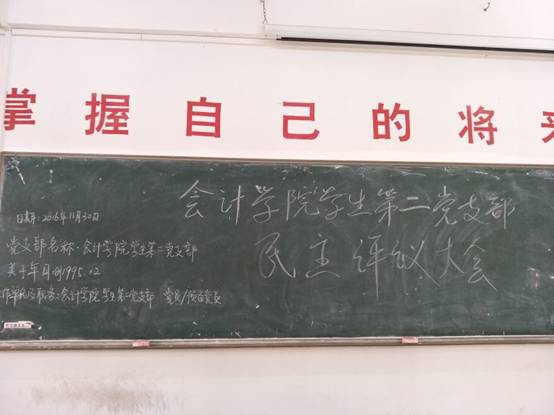 掌握自己的将来
会计学院学生第二党支部
民主评议大会
日期:2016年11月30日
党支部名称:会计学院学生第二党支部
出生年月:1995.12
会计学院学生第二党支部 党员/预备党员